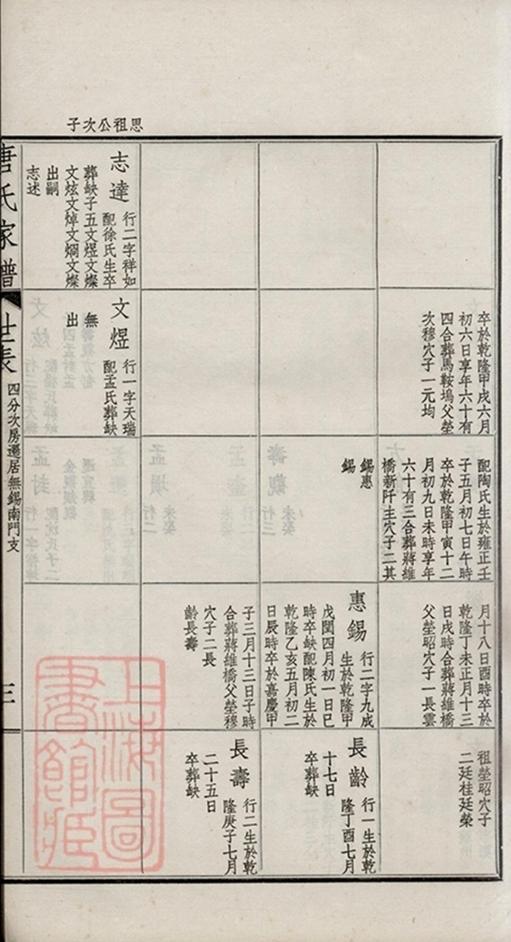 思祖公次子
卒於乾隆甲戌六月
初六日享年六十有
四合葬馬鞍塢父塋
次穆穴子一元均
配陶氏生於雍正壬
子五月初七日午時
卒於乾隆甲寅十二
月初九日未時享年
六十有三合葬蔣雄
橋新阡主穴子二其
錫惠
錫
月十八日酉時卒於
乾隆丁未正月十三
日戌時合葬蔣雄橋
父塋昭穴子一長雲
祖塋昭穴子
二廷桂廷榮
惠錫
行二字九成
生於乾隆甲
戊閏四月初一日巳
時卒缺配陳氏生於
乾隆乙亥五月初二
日辰時卒於嘉慶甲
子三月十三日子時
合葬蔣雄橋父塋穆
穴子二長
齡長壽
長齡
行一生於乾
隆丁酉七月
十七日
卒葬缺
長壽
行二生於乾
隆庚子七月
二十五日
卒葬缺
志達
行二字祥如
配徐氏生卒
葬缺子五文煜文燦
文炫文焯文燗文燦
出嗣
志述
文煜
行一字天瑞
配孟氏葬缺
無
出
唐氏家譜
世表
四分次房遷居無錫南門支
三
上海圖書館藏